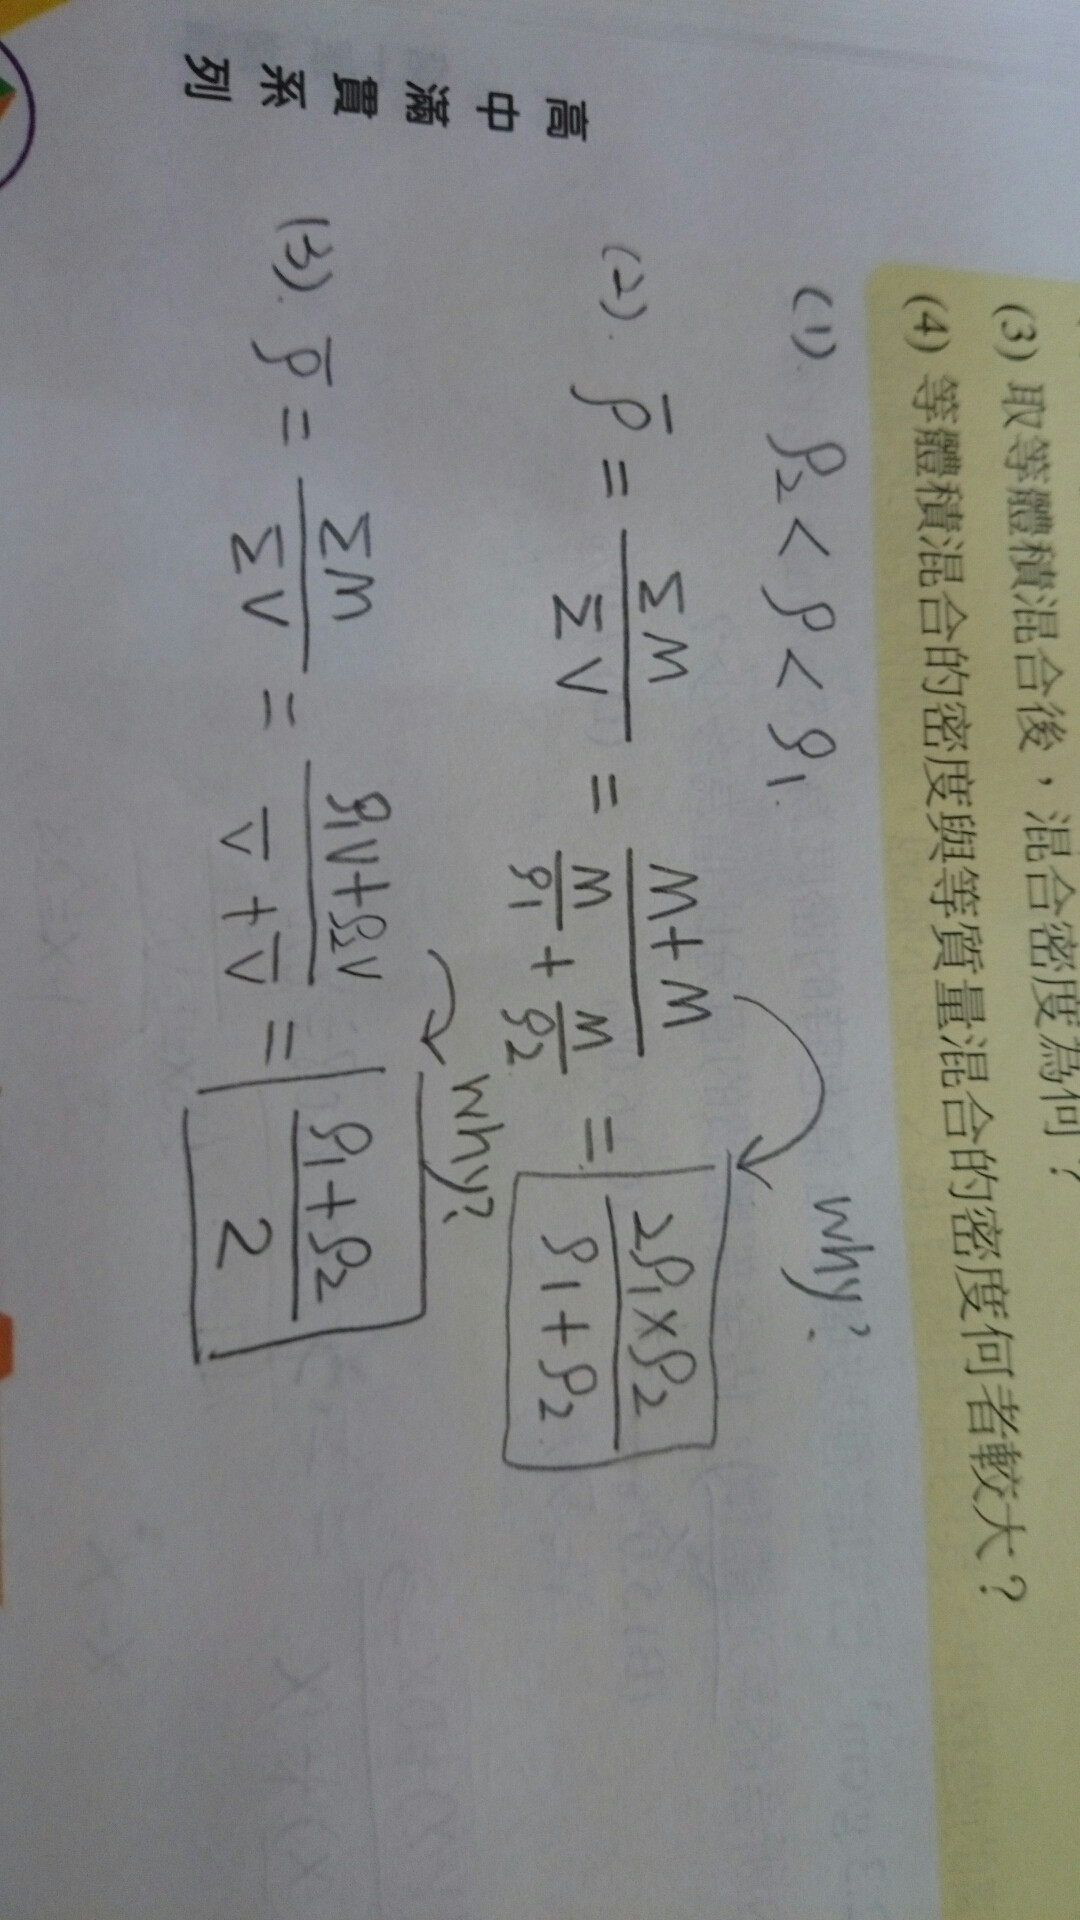 (3) 取等體積混合後，混合密度為何？
(4) 等體積混合的密度與等質量混合的密度何者較大？
(1). ρ₂ < ρ < ρ₁
(2). ρ̄ = ΣM/ΣV = (M+M)/(M/ρ₁ + M/ρ₂) = (2ρ₁×ρ₂)/(ρ₁+ρ₂)
why?
(3). ρ̄ = ΣM/ΣV = (ρ₁V+ρ₂V)/(V+V) = (ρ₁+ρ₂)/2
why?
高中滿貫系列